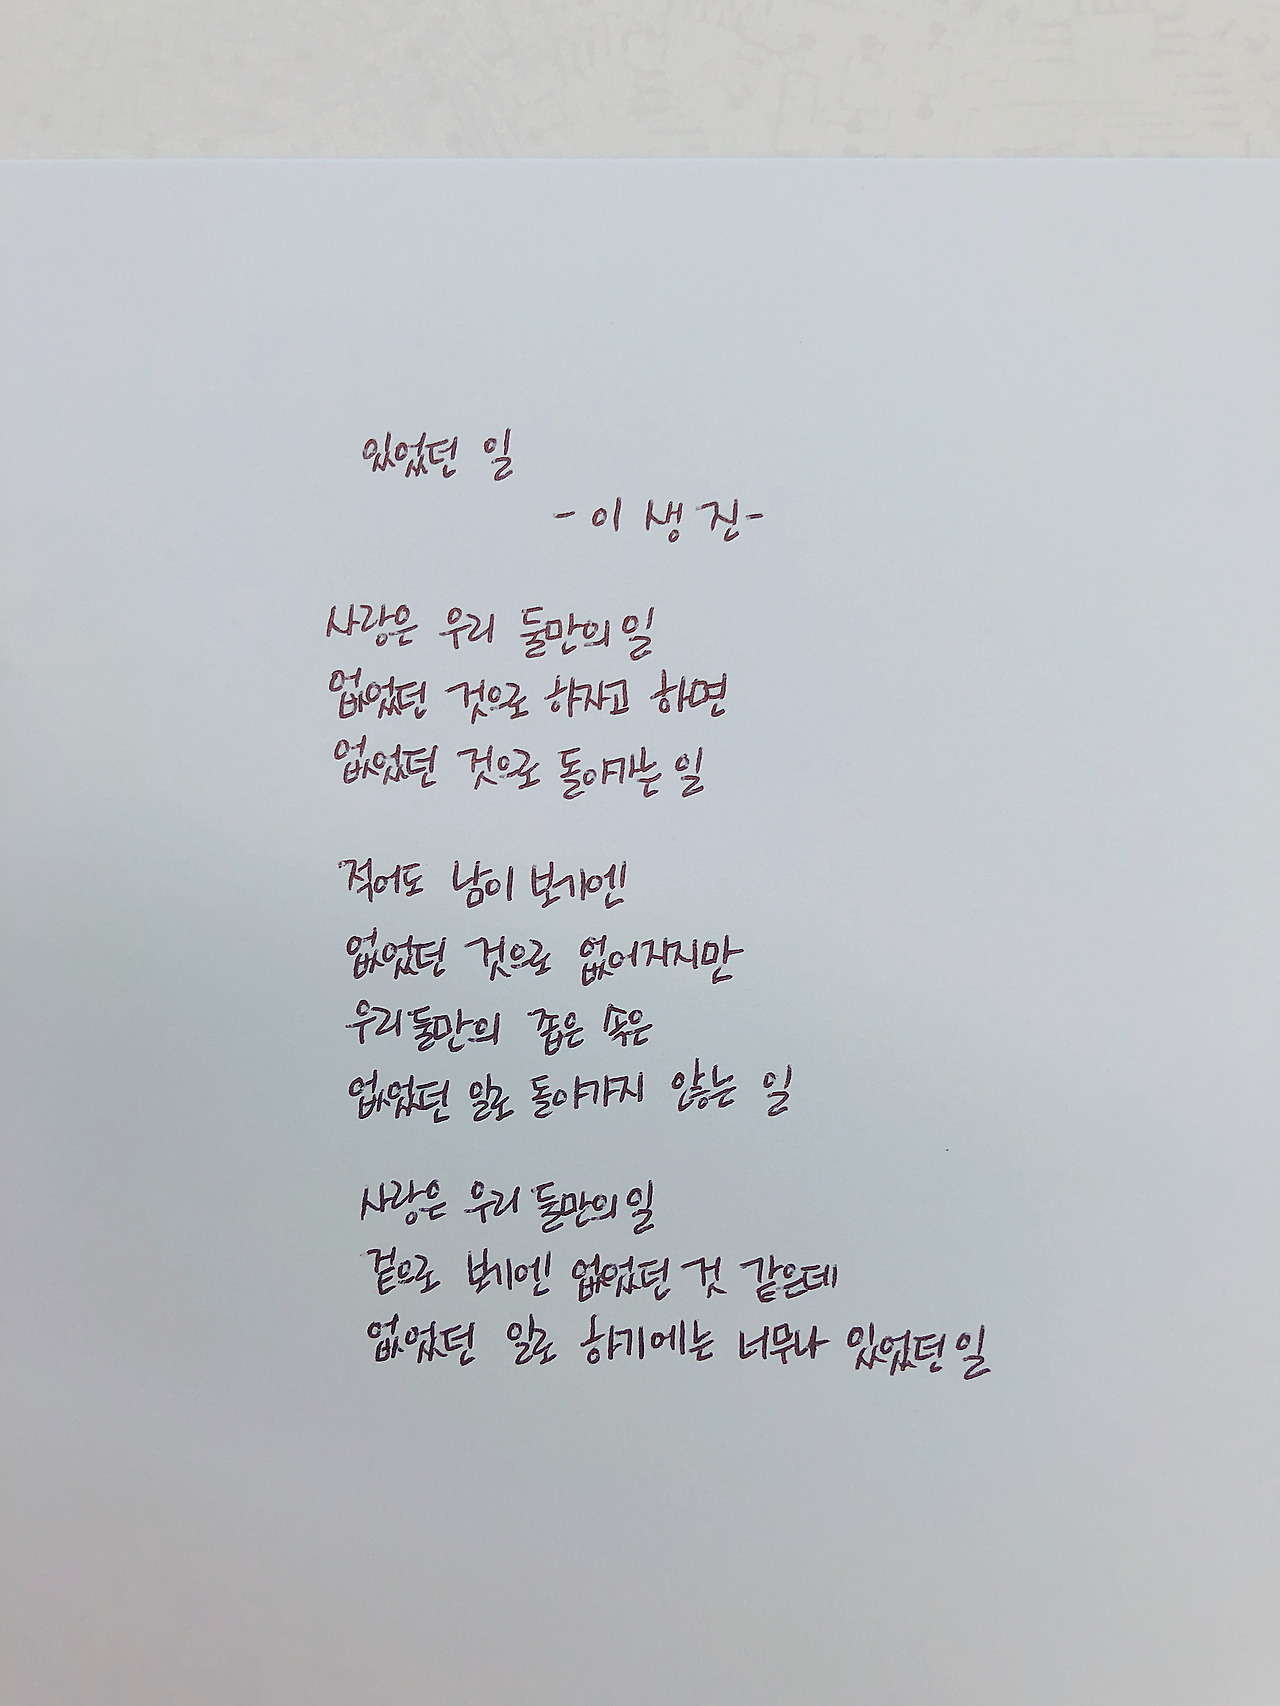 있었던 일
- 이 생 진 -
사랑은 우리 둘만의 일
없었던 것으로 하자고 하면
없었던 것으로 돌아가는 일
적어도 남이 보기엔
없었던 것으로 없어지지만
우리둘만의 좁은 속은
없었던 일로 돌아가지 않는 일
사랑은 우리 둘만의 일
겉으로 보기엔 없었던 것 같은데
없었던 일로 하기에는 너무나 있었던 일